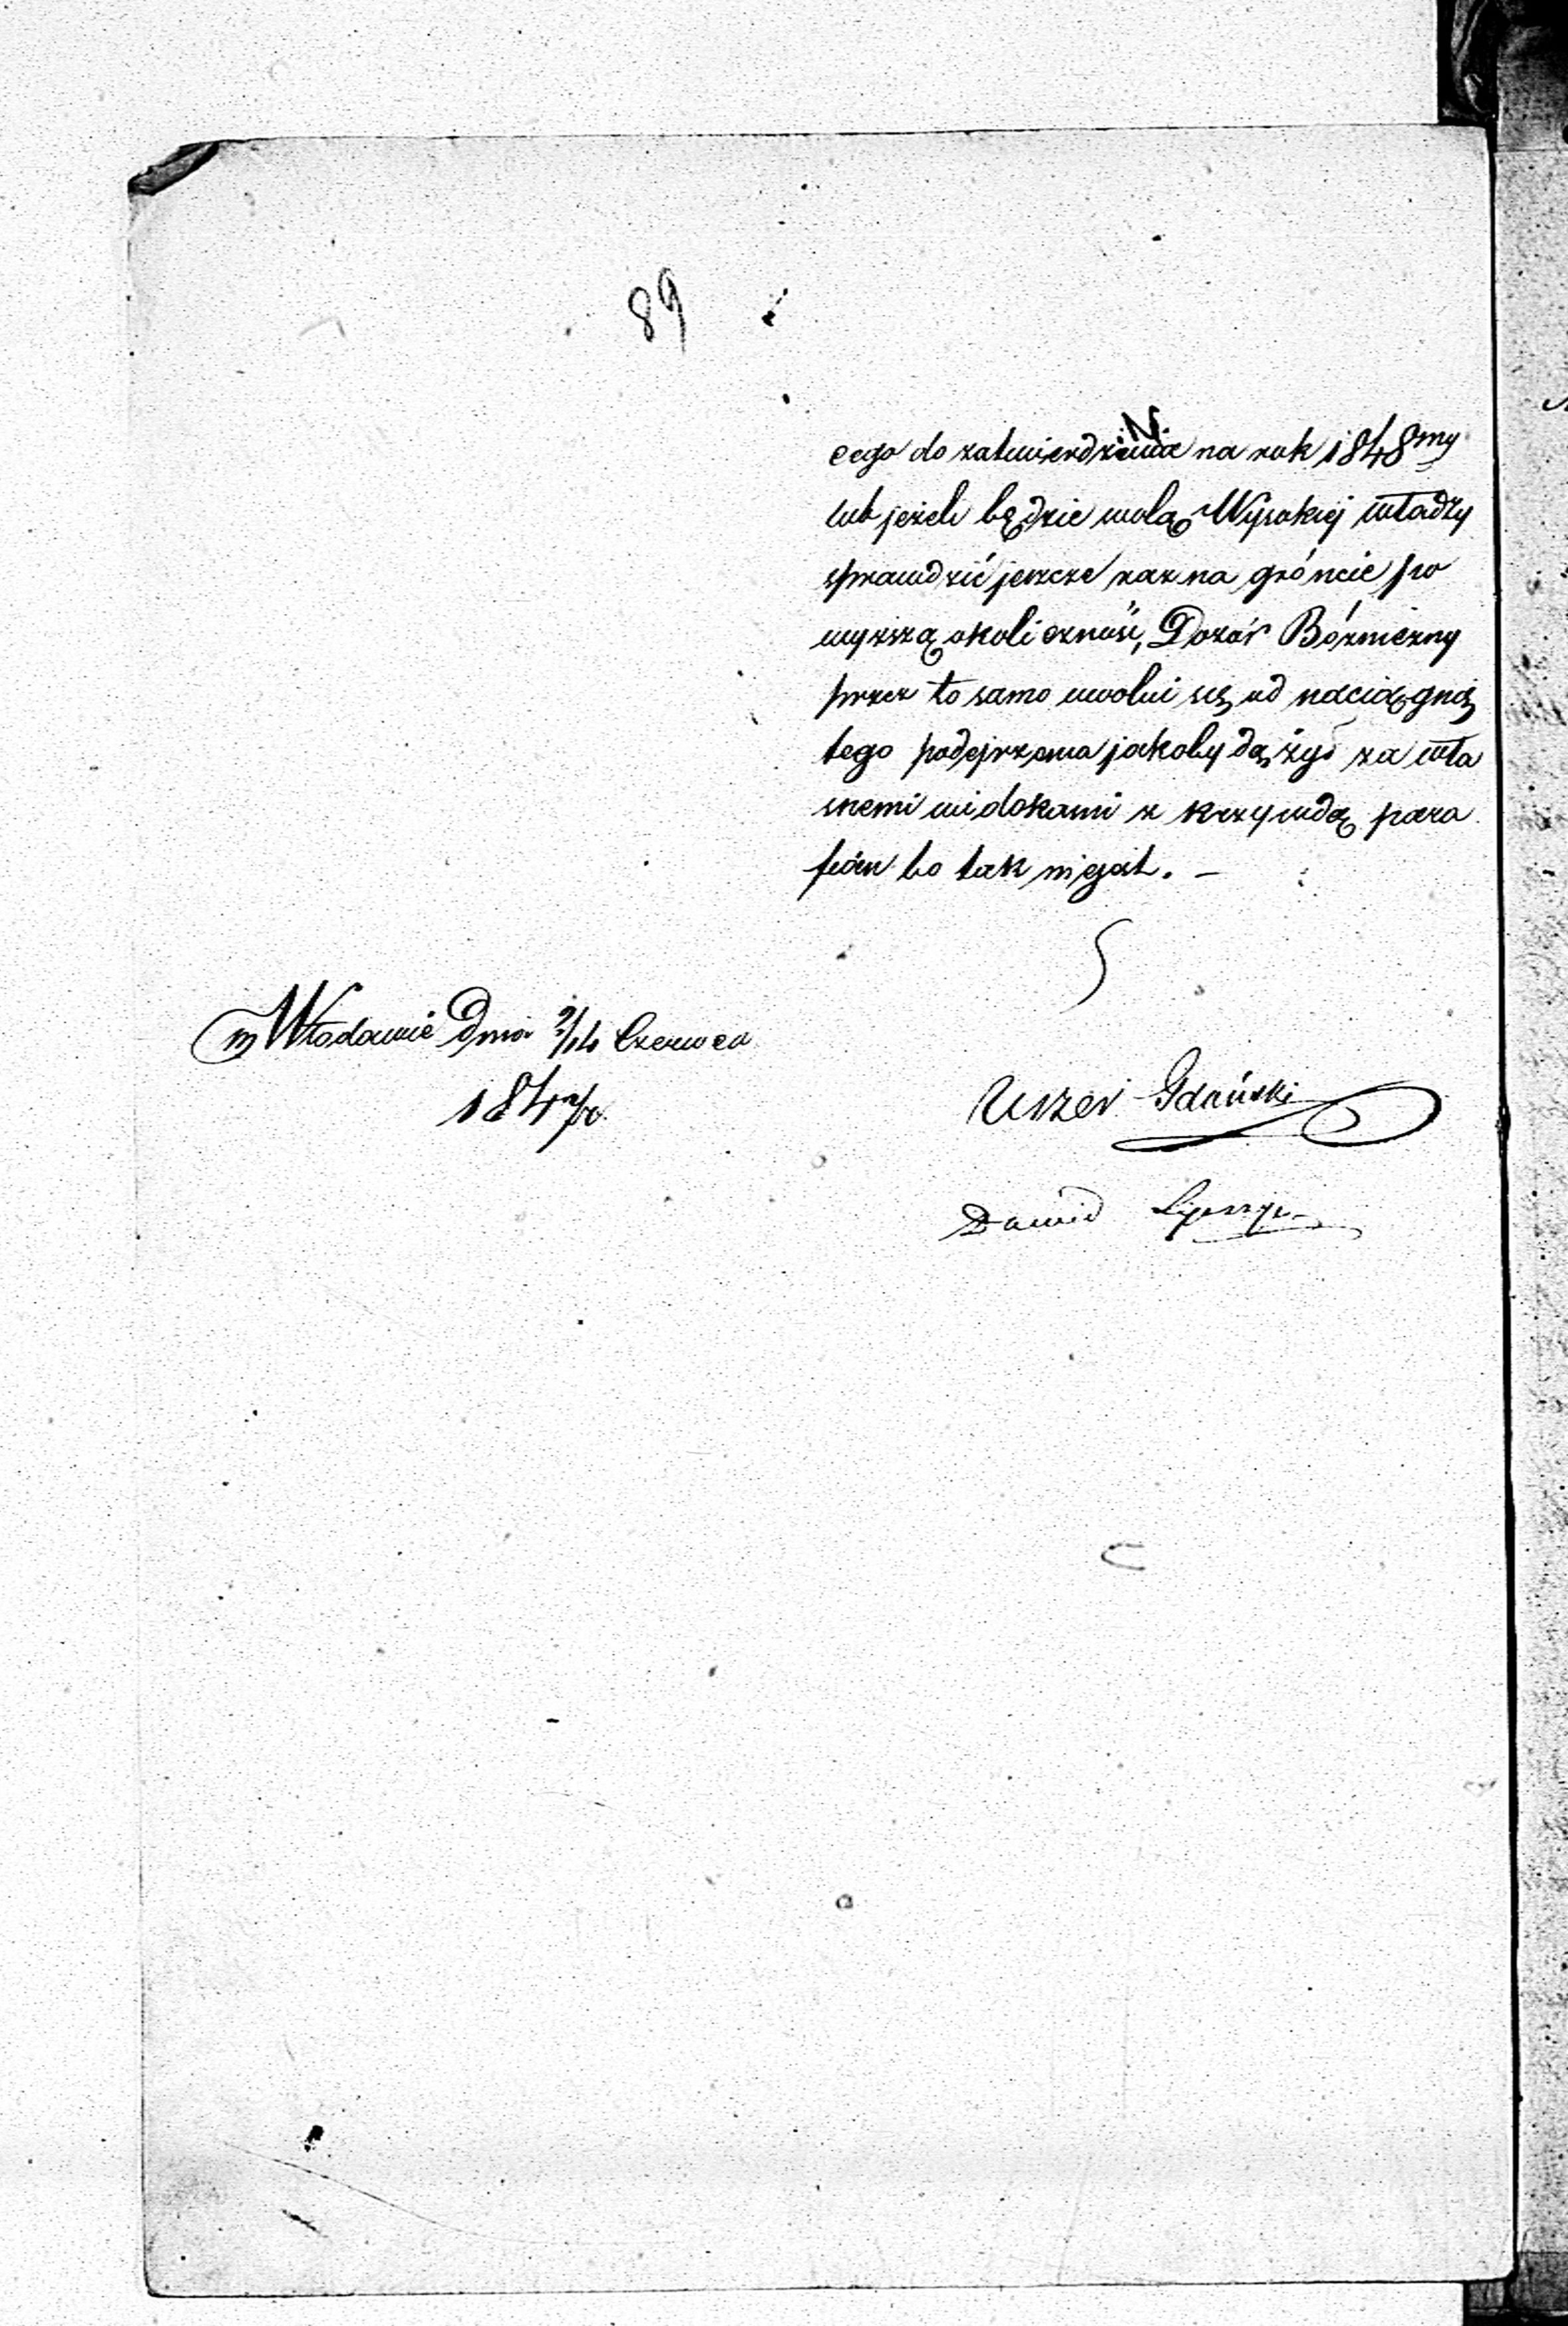 89
cego do zatwierdzenia na rok 1848my
lub jeżeli będzie wolą Wysokiej władzy
sprawdzić jeszcze raz na gróncie po
wyższą okoliczność, Dozór Bóżniczny
przez to samo uwolni się od naciągnię
tego podejrzenia jakoby dążył za wła
snemi widokami z krzywdą para
fian bo tak nigdy. —
w Włodawie Dnia 2/14 Czerwca
1847 r.
Uszer Gdański
Dawid